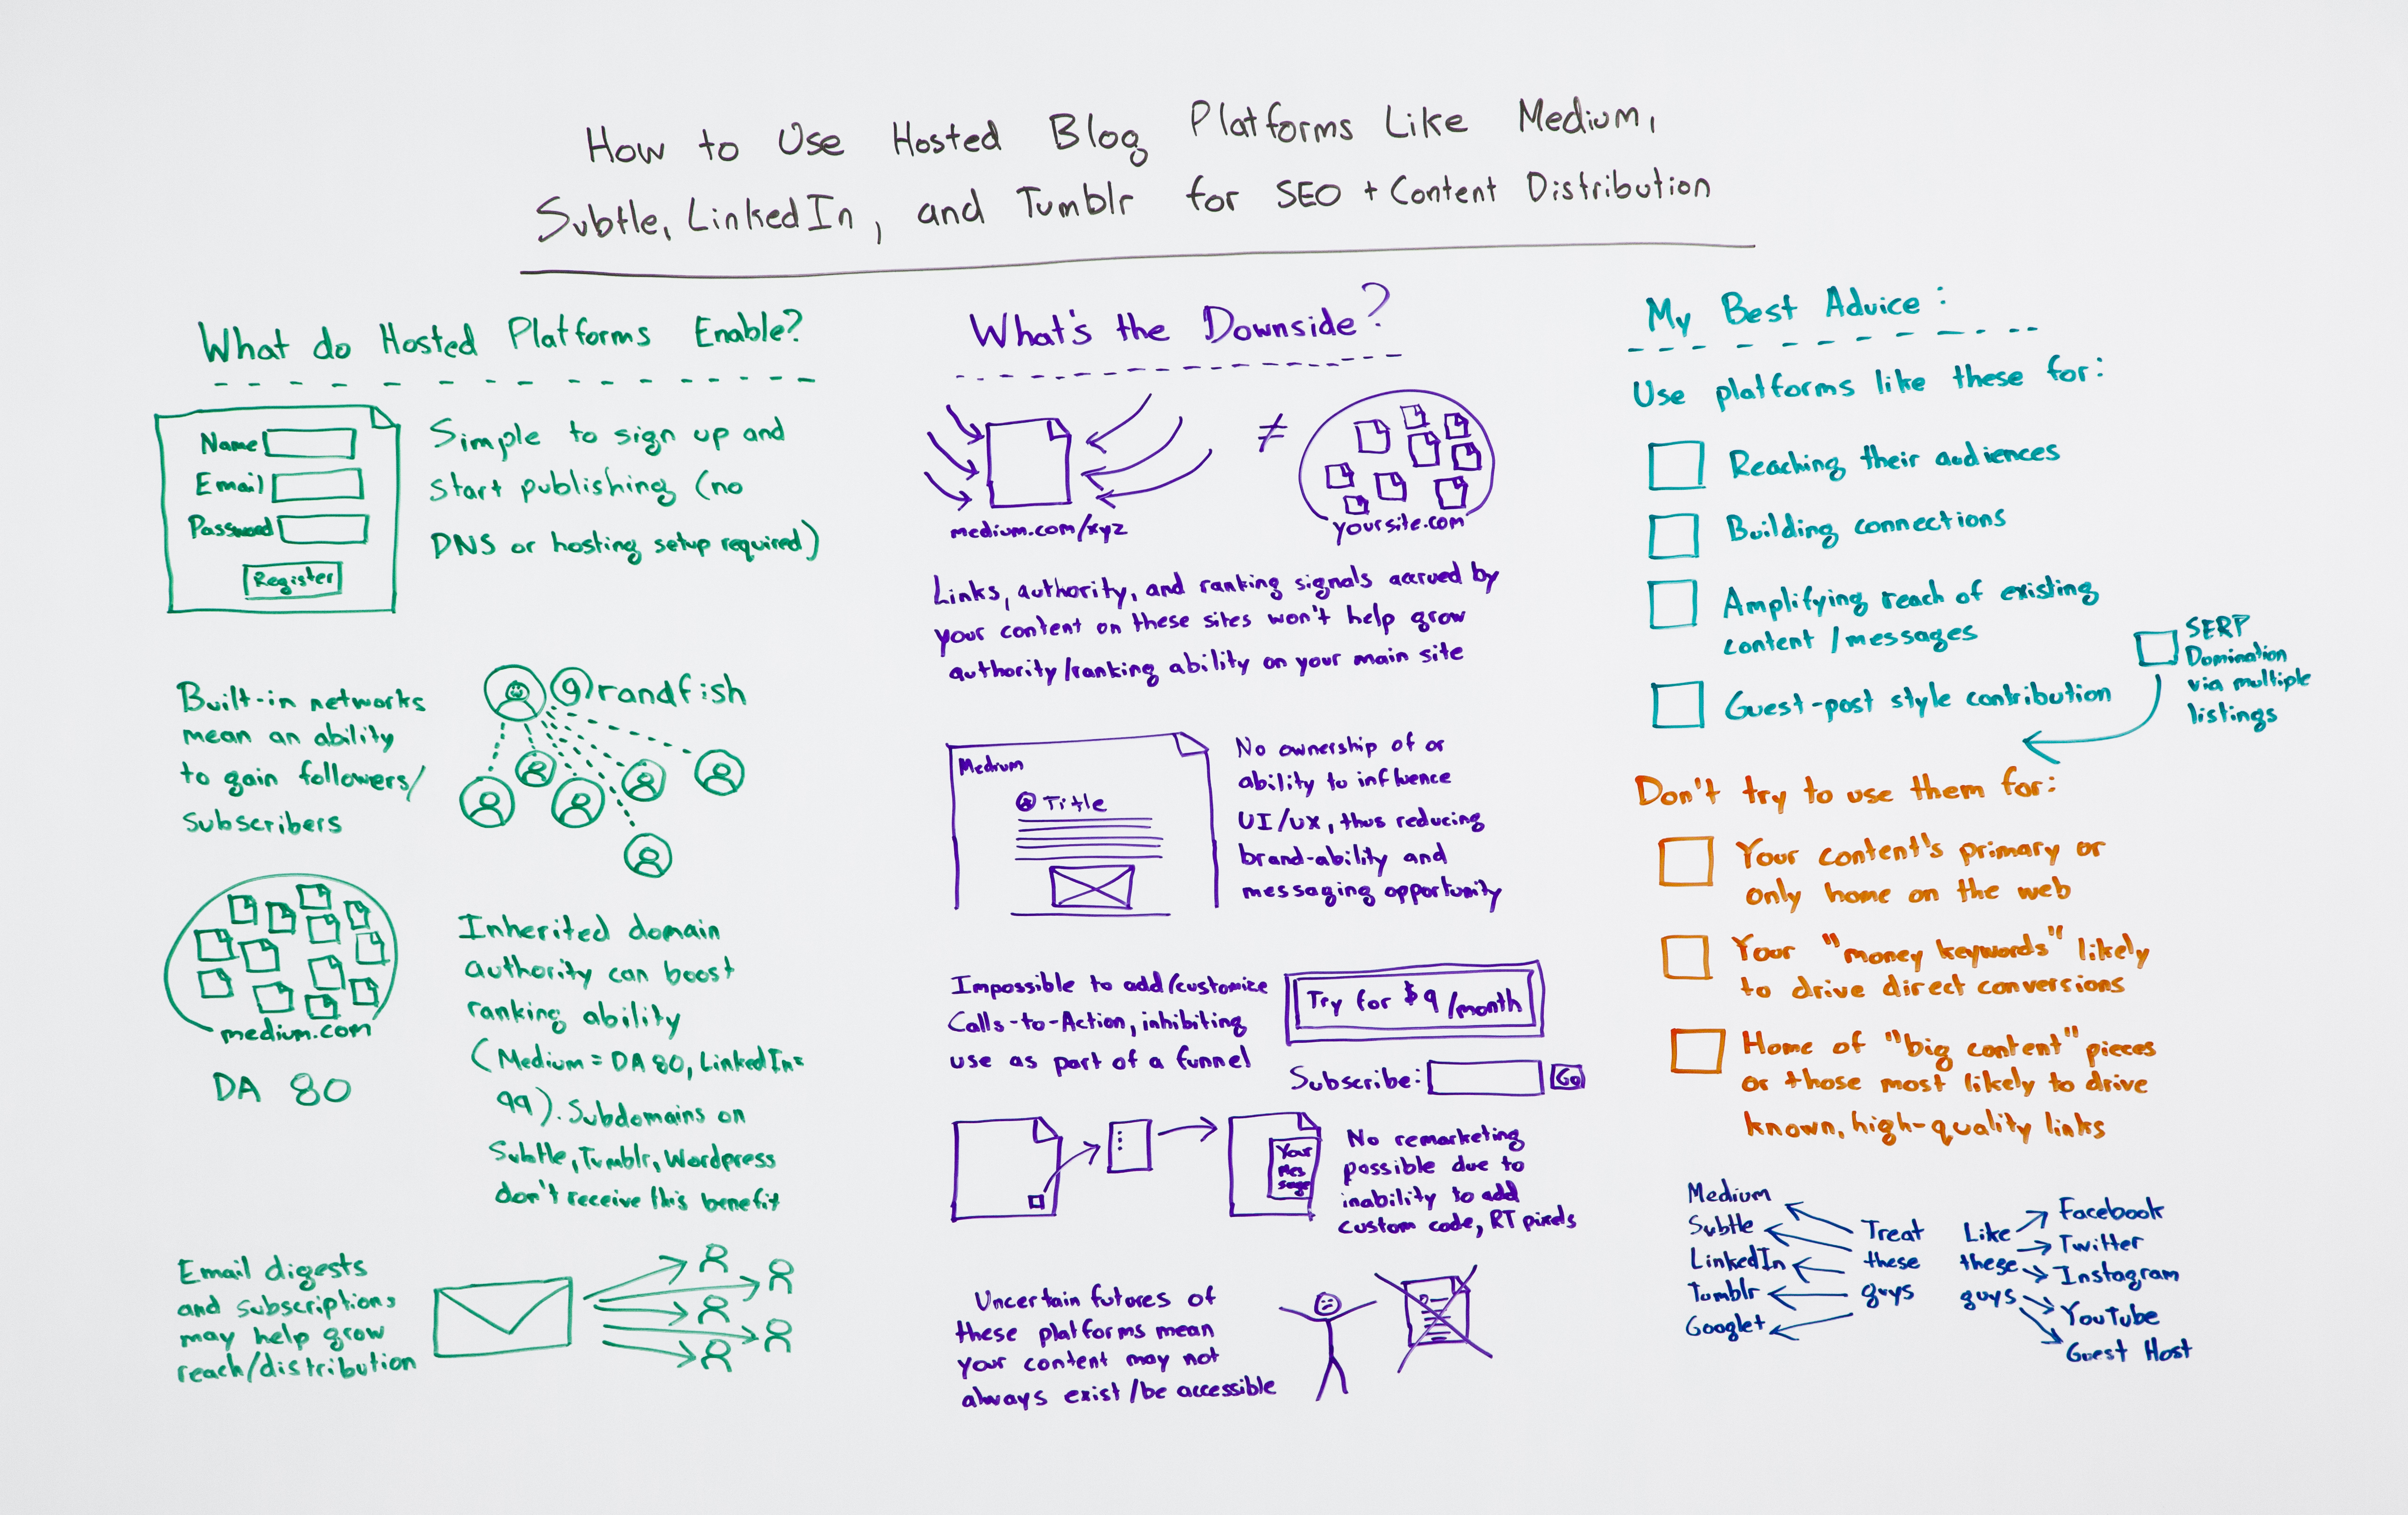 How to Use Hosted Blog Platforms Like Medium,
Subtle, LinkedIn, and Tumblr for SEO + Content Distribution
What do Hosted Platforms Enable?
Name
Email
Password
Register
Simple to sign up and
start publishing (no
DNS or hosting setup required)
Built-in networks
mean an ability
to gain followers/
subscribers
@randfish
medium.com
DA 80
Inherited domain
authority can boost
ranking ability
(Medium = DA 80, LinkedIn=
99). Subdomains on
Subtle, Tumblr, Wordpress
don't receive this benefit
Email digests
and subscriptions
may help grow
reach/distribution
What's the Downside?
medium.com/xyz
≠
yoursite.com
Links, authority, and ranking signals accrued by
your content on these sites won't help grow
authority/ranking ability on your main site
Medium
Title
No ownership of or
ability to influence
UI/UX, thus reducing
brand-ability and
messaging opportunity
Impossible to add/customize
Calls-to-Action, inhibiting
use as part of a funnel
Try for $9/month
Subscribe:
Go
Your
Mes
sage
No remarketing
possible due to
inability to add
custom code, RT pixels
Uncertain futures of
these platforms mean
your content may not
always exist/be accessible
My Best Advice:
Use platforms like these for:
Reaching their audiences
Building connections
Amplifying reach of existing
content/messages
Guest-post style contribution
SERP
Domination
via multiple
listings
Don't try to use them for:
Your content's primary or
only home on the web
Your "money keywords" likely
to drive direct conversions
Home of "big content" pieces
or those most likely to drive
known, high-quality links
Medium
Subtle
LinkedIn
Tumblr
Google+
Treat
these
guys
Like
these
guys
Facebook
Twitter
Instagram
YouTube
Guest Host